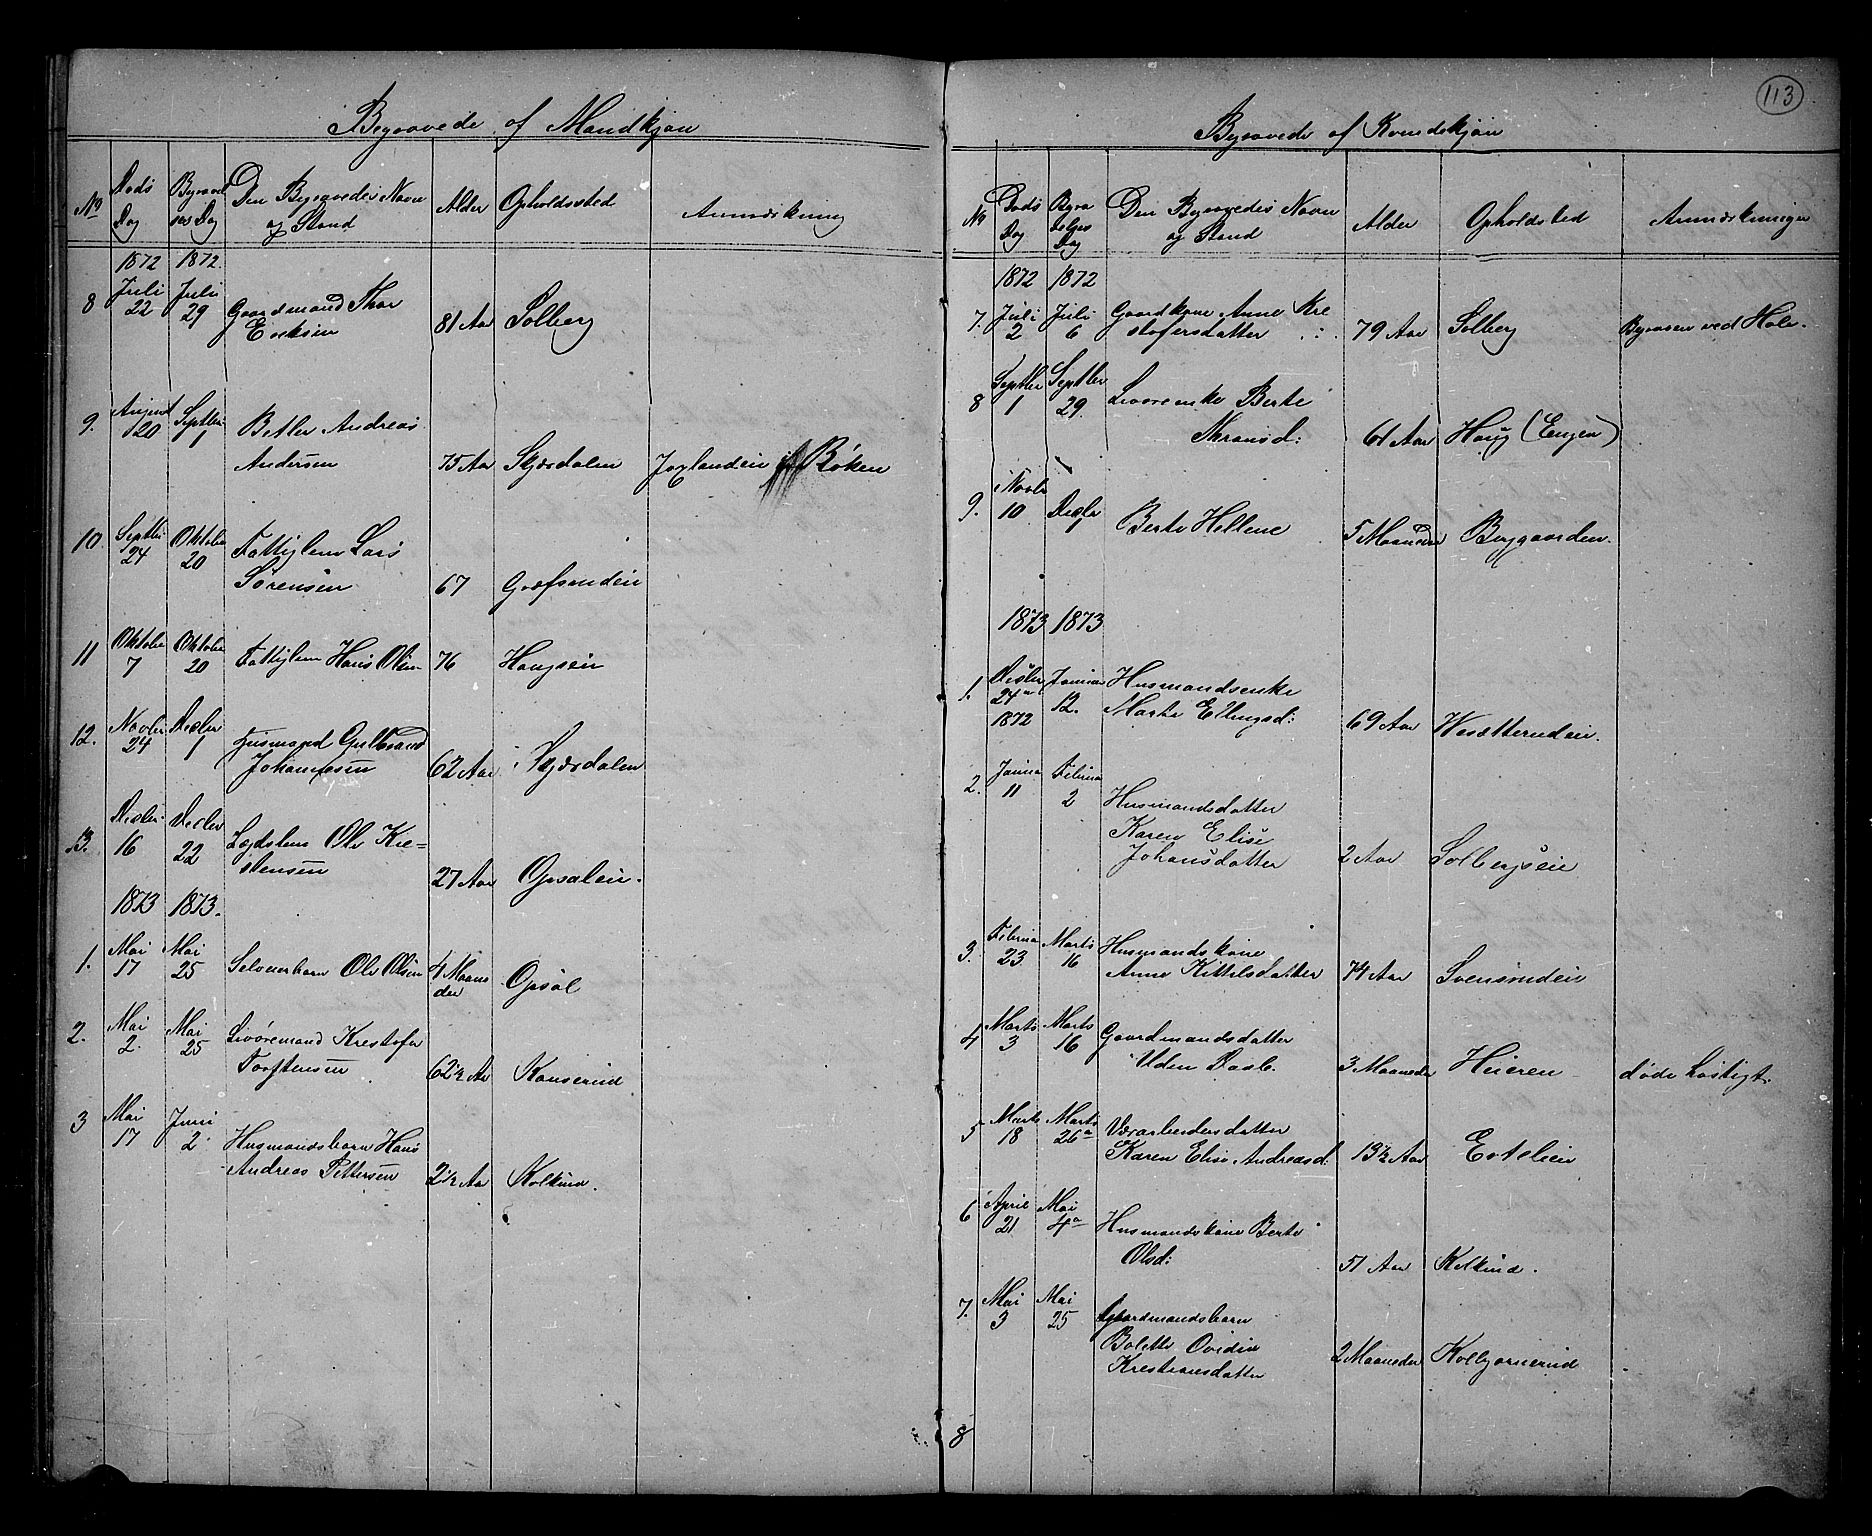 113
Begravede af Mandkjøn
No
Døds Dag
Begravelses Dag
Den Begravedes Navn og Stand
Alder
Opholdssted
Anmærkning
1872 1872
8 Juli 22 Juli 29 Gaardmand Thor
Eriksen 81 Aar Solberg
9. August 20 Septbr 1 Betler Andreas
Andersen 75 Aar Skjærdalen Røken
10. Septbr 24 Oktober 20 Fattiglem Lars
Sørensen 67
11 Oktober 7 Oktober 20 Fattiglem Hans Olsen 76 Haugsein
12. Novbr 24 Decbr 1 Husmand Gulbrand
Johannesen 62 Aar Skjærdalen
13. Decbr 16 Decbr 22 Lægdslem Ole Kre=
stensen 27 Aar Opsalein.
1873 1873.
1. Mai 17 Mai 25 Selveierbarn Ole Olsen 4 Maaneder Opsal
2. Mai 2. Mai 25 Livøremand Krestofer
Torstensen 62½ Ar
3 Mai 17 Juni 2 Husmandsbarn Hans
Andreas Pettersen 2½ Aar
Begravede af Kvindekjøn
No
Døds Dag
Begravelses Dag
Den Begravedes Navn og Stand
Alder
Opholdsted
Anmærkninger
1872 1872
7. Juli 2 Juli 6 Gaardkone Anne Kre
stofersdatter 79 Aar Solberg Begraven ved Hole.
8 Septbr 1 Septbr 29. Livøreenke Berte
61 Aar Haug (Engen)
9. Novbr 10 Decbr 1 Berte Hellene 5 Maaneder Berggaarden.
1873 1873
1. Decbr 24 1872 Januar 12. Husmandsenke
Marte Ellingsd: 69 Aar
2. Januar 11 Februar 2 Husmandsdatter
Karen Elise
Johansdatter 2 Aar Solbergsein
3. Februar 23 Marts 16 Husmandskone
Anne Kittelsdatter 74 Aar
4 Marts 3 Marts 16 Gaardmandsdatter
Uden Daab. 3 Maaneder Heieren døde hastigt.
5 Marts 18 Marts 26
Karen Elise Andreasd: 13½ Aar
6 April 21 Mai 4 Husmandskone Berte
Olsd: 51 Aar
7. Mai 3 Mai 25 Gaardmandsbarn
Bolette Ovidia
Krestiansdatter 2 Maaneder Kolbjørnerud
8